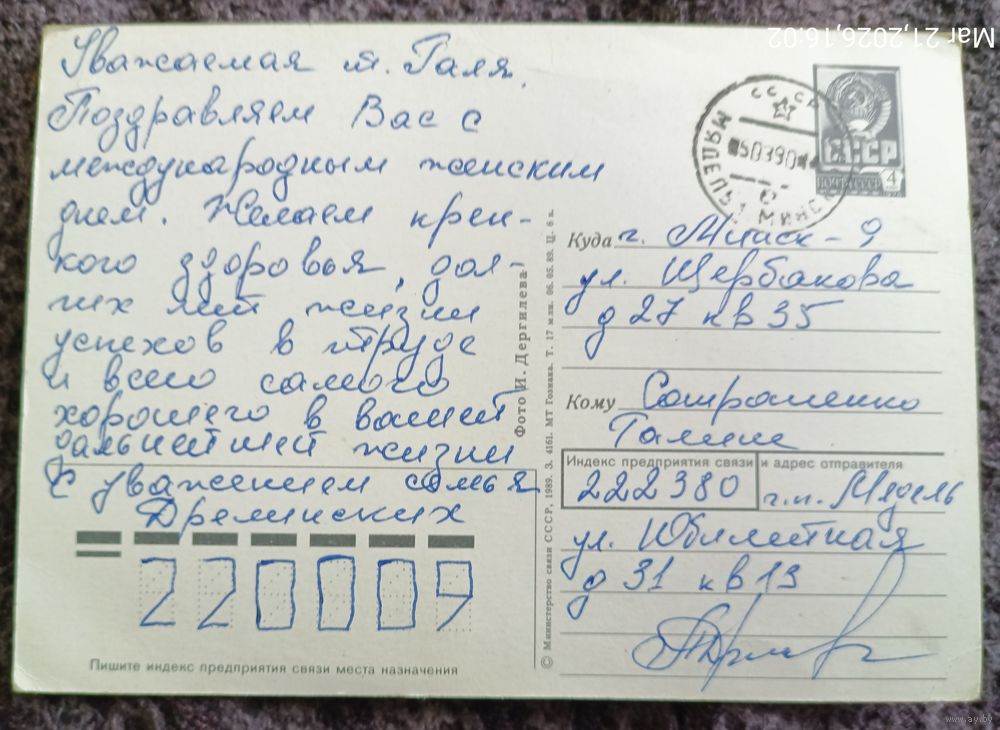 Уважаемая т. Галя.
Поздравляем Вас с
международным женским
днем. Желаем креп-
кого здоровья, дол-
гих лет жизни
успехов в труде
и всего самого
хорошего в вашей
дальнейшей жизни
С уважением семья
Дреминских
220009
Пишите индекс предприятия связи места назначения
Фото И. Дергилева
© Министерство связи СССР, 1989. З. 4161. МТ Гознака. Т. 17 млн. 06.05.89. Ц. 6 к.
Mar 21,2026,16:02
СССР
МЯДЕЛЬ МИНСК
СССР
ПОЧТА СССР
4
Куда г. Минск - 9
ул. Щербакова
д 27 кв 35
Кому
Галине
Индекс предприятия связи и адрес отправителя
222380 г.п. Мядель
ул. Юбилейная
д 31 кв 13
www.ay.by